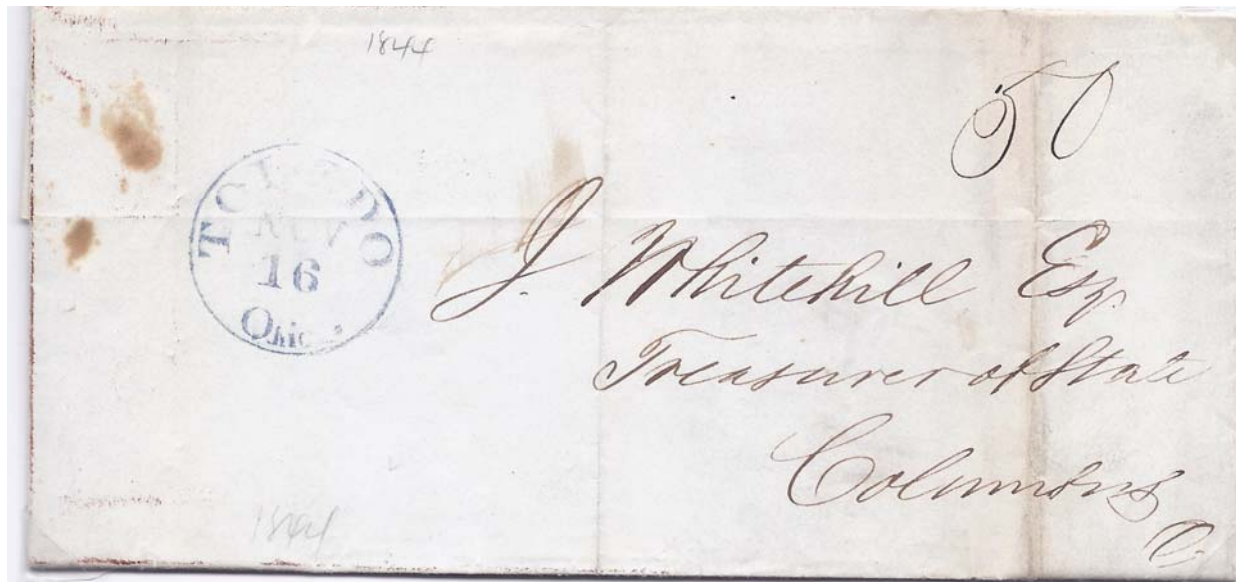 1844
50
TOLEDO
NOV
16
Ohio.
J. Whitehill Esq.
Treasurer of State
Columbus
O.
1844